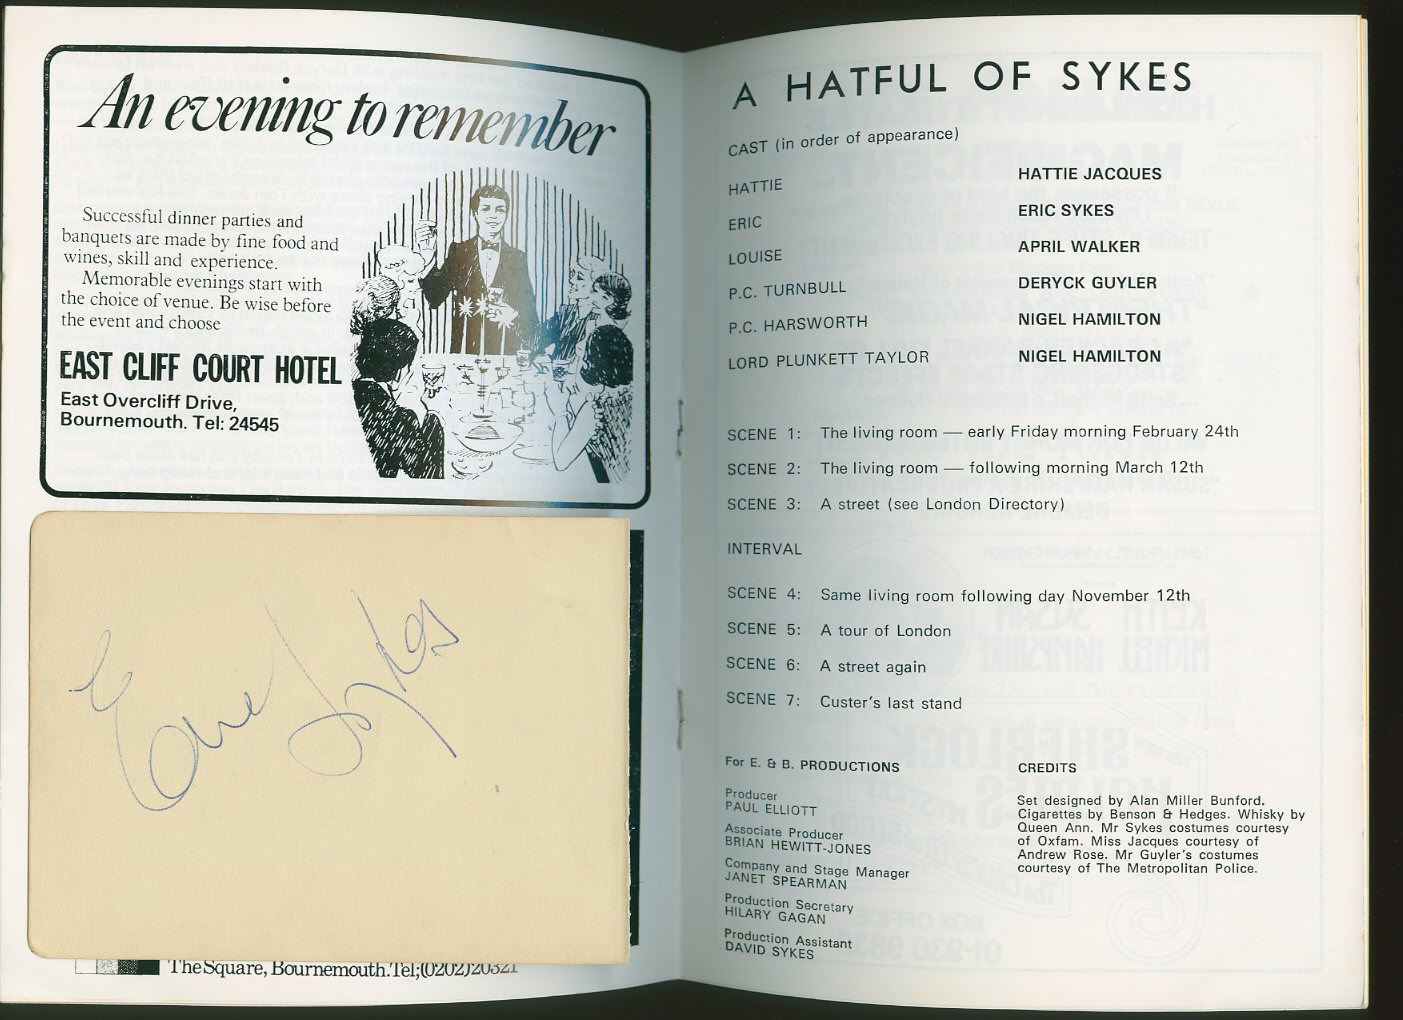 An evening to remember
Successful dinner parties and
banquets are made by fine food and
wines, skill and experience.
Memorable evenings start with
the choice of venue. Be wise before
the event and choose
EAST CLIFF COURT HOTEL
East Overcliff Drive,
Bournemouth. Tel: 24545
Eric Sykes
The Square, Bournemouth.Tel;(0202)20321
A HATFUL OF SYKES
CAST (in order of appearance)
HATTIE HATTIE JACQUES
ERIC ERIC SYKES
LOUISE APRIL WALKER
P.C. TURNBULL DERYCK GUYLER
P.C. HARSWORTH NIGEL HAMILTON
LORD PLUNKETT TAYLOR NIGEL HAMILTON
SCENE 1: The living room — early Friday morning February 24th
SCENE 2: The living room — following morning March 12th
SCENE 3: A street (see London Directory)
INTERVAL
SCENE 4: Same living room following day November 12th
SCENE 5: A tour of London
SCENE 6: A street again
SCENE 7: Custer's last stand
For E. & B. PRODUCTIONS
Producer
PAUL ELLIOTT
Associate Producer
BRIAN HEWITT-JONES
Company and Stage Manager
JANET SPEARMAN
Production Secretary
HILARY GAGAN
Production Assistant
DAVID SYKES
CREDITS
Set designed by Alan Miller Bunford.
Cigarettes by Benson & Hedges. Whisky by
Queen Ann. Mr Sykes costumes courtesy
of Oxfam. Miss Jacques courtesy of
Andrew Rose. Mr Guyler's costumes
courtesy of The Metropolitan Police.